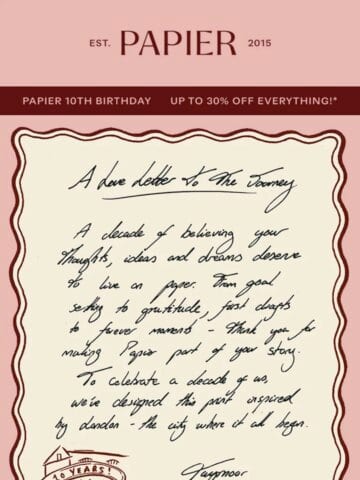 EST. PAPIER 2015
PAPIER 10TH BIRTHDAY UP TO 30% OFF EVERYTHING!*
A Love Letter To The Journey
A decade of believing your
thoughts, ideas and dreams deserve
to live on paper. From goal
setting to gratitude, first drafts
to forever moments - Thank you for
making Papier part of your story.
To celebrate a decade of us,
we've designed this print inspired
by London - the city where it all began.
10 YEARS!